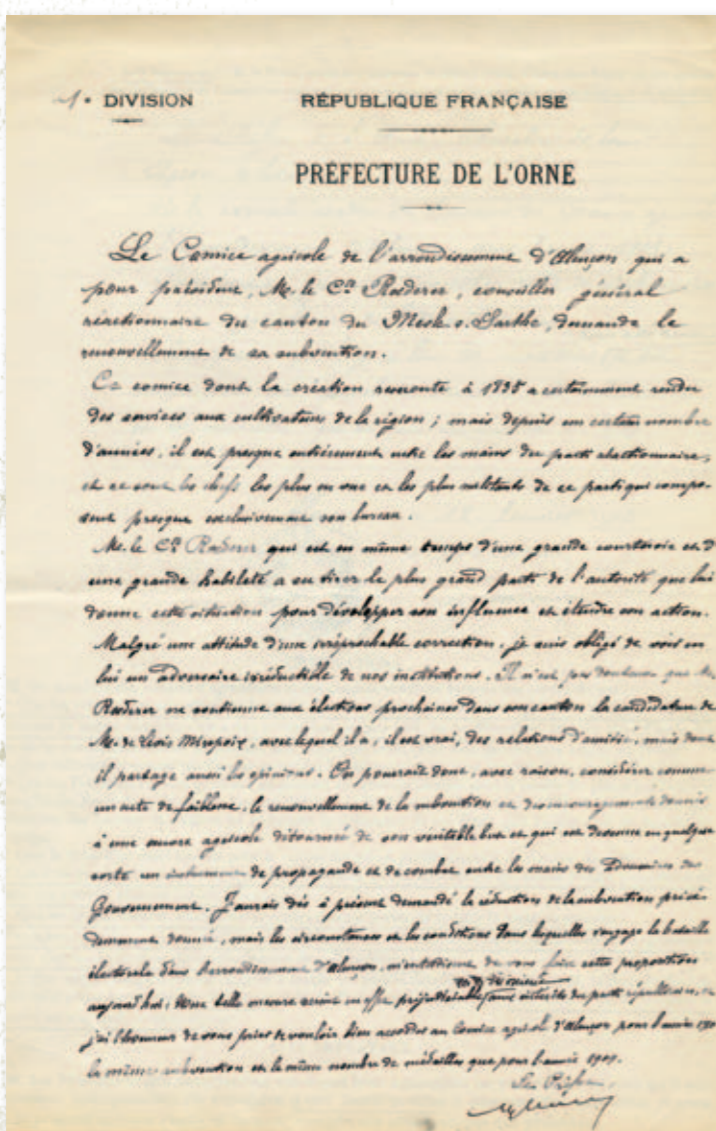 1e DIVISION
RÉPUBLIQUE FRANÇAISE
PRÉFECTURE DE L'ORNE
Le Comice agricole de l'arrondissement d'Alençon qui a
pour président, Mr. le Cte Rœderer, conseiller général
réactionnaire du canton du Mesle s. Sarthe, demande le
renouvellement de sa subvention.
Ce comice dont la création remonte à 1835 a certainement rendu
des services aux cultivateurs de la région ; mais depuis un certain nombre
d'années, il est presque entièrement entre les mains du parti réactionnaire,
et ce sont les chefs les plus en vue et les plus militants de ce parti qui compo-
sent presque exclusivement son bureau.
Mr. le Cte Rœderer qui est en même temps d'une grande courtoisie et d'
une grande habileté a su tirer le plus grand parti de l'autorité que lui
donne cette situation pour développer son influence et étendre son action.
Malgré une attitude d'une irréprochable correction, je suis obligé de voir en
lui un adversaire irréductible de nos institutions. Il n'est pas douteux que Mr.
Rœderer ne soutienne aux élections prochaines dans son canton la candidature de
Mr. de Levis Mirepoix, avec lequel il a, il est vrai, des relations d'amitié, mais dont
il partage aussi les opinions. On pourrait donc, avec raison, considérer comme
un acte de faiblesse, le renouvellement de la subvention et des encouragements donnés
à une œuvre agricole détournée de son véritable but et qui est devenue en quelque
sorte un instrument de propagande et de combat entre les mains des du
Gouvernement. J'aurais dès à présent demandé la réduction de la subvention précé-
demment donnée, mais les circonstances et les conditions dans lesquelles s'engage la bataille
électorale dans l'arrondissement d'Alençon, de vous faire cette proposition
aujourd'hui. Une telle mesure serait en effet préjudiciable aux intérêts du parti républicain,
j'ai l'honneur de vous prier de vouloir bien accorder au Comice agricole d'Alençon pour l'année
la même subvention et le même nombre de médailles que pour l'année 1901.
Le Préfet,